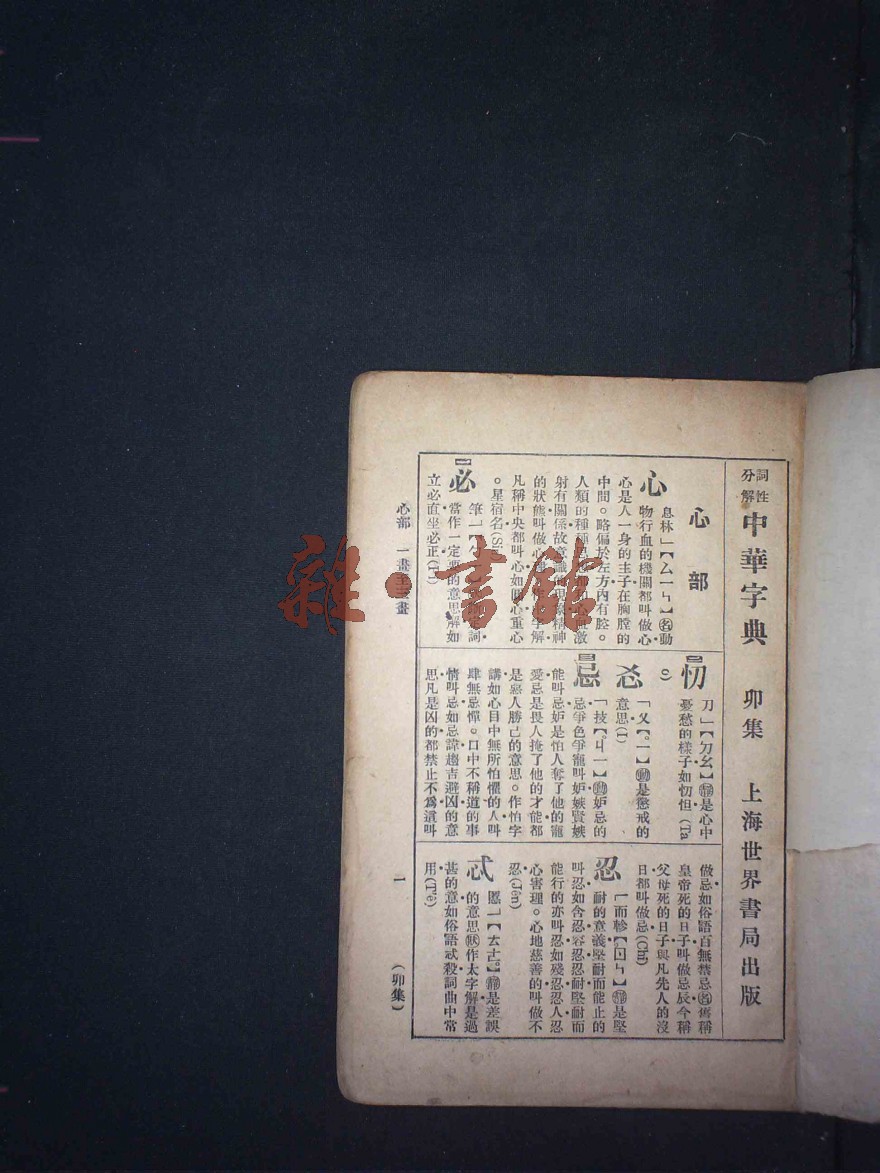 詞性分解 中華字典 卯集 上海世界書局出版
心部
心
息林」【ㄙㄧㄣ】名動
物行血的機關都叫做心
心是人一身的主子在胸膛的
中間。略偏於左方內有腔。
人類的種種
射有關係故意識
的狀態叫做心
凡稱中央都叫心如
心重心
。星宿名
必
筆一
當作一定要的意思解如
立必直坐必正
忉
刀」【ㄉㄠ】靜是心中
憂愁的樣子如忉怛(Ta
o)
忍
「乂【ㄧ】動是懲戒的
意思(I)
忌
「技【ㄐㄧ】動妒忌的
忌爭色爭寵叫妒嫉賢嫉
能叫忌妒是怕人奪了他的寵
愛忌是畏人掩了他的才能都
是惡人勝己的意思。作怕字
講如心目中無所怕懼的人叫
肆無忌憚。口中不稱道的事
情叫忌如忌諱趨吉避凶的意
思凡是凶的都禁止不爲這叫
做忌如俗語百無禁忌名舊稱
皇帝死的日子叫做忌辰今稱
父母死的日子與凡先人的沒
日都叫做忌(Chi)
忍
「而軫【ㄖㄣ】靜是堅
耐的意義堅耐而能止的
叫忍如含忍容忍忍耐堅耐而
能行的亦叫忍如殘忍忍人忍
心害理。心地慈善的叫做不
忍(Jên)
忒
慝」【ㄊㄜ】靜是差誤
的意思狀作太字解是過
甚的意如俗語忒殺詞曲中常
用(T'ê)
心部 一畫至三畫
一
(卯集)
雜·書館